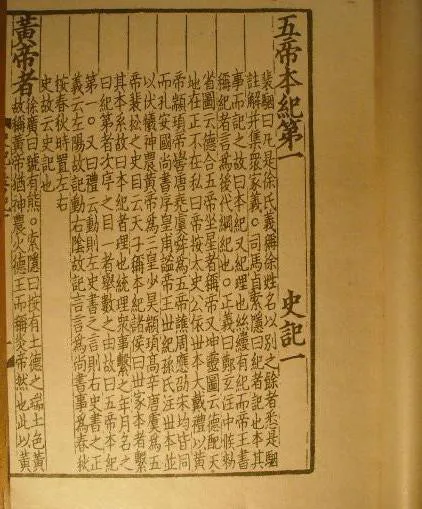 五帝本紀第一 史記一
裴駰曰凡是徐氏義稱徐姓名以別之餘者悉是駰
註解并集眾家義○司馬貞索隱曰紀者記也本其
事而記之故曰本紀又紀理也絲縷有紀而帝王書
稱紀者言爲後代綱紀也○正義曰鄭玄注中候勑
省圖云德合五帝坐星者稱帝又坤靈圖云德配天
地在正不在私曰帝按太史公依世本大戴禮以黃
帝顓頊帝嚳唐堯虞舜爲五帝譙周應劭宋均皆同
而孔安國尚書序皇甫謐帝王世紀孫氏注世本並
以伏犧神農黃帝爲三皇少昊顓頊高辛唐虞爲五
帝裴松之史目云天子稱本紀諸侯曰世家本者繫
其本系故曰本紀者理也統理眾事繫之年月名之
曰紀第者次序之目一者舉數之由故曰五帝本紀
第一○又曰禮云動則左史書之言則右史書之正
義云左陽故記動右陰故記言言爲尚書事爲春秋
按春秋時置左右
史故云史記也
黃帝者
徐廣曰號有熊○索隱曰按有土德之瑞土色黃
故稱黃帝猶神農火德王而稱炎帝然也此以黃